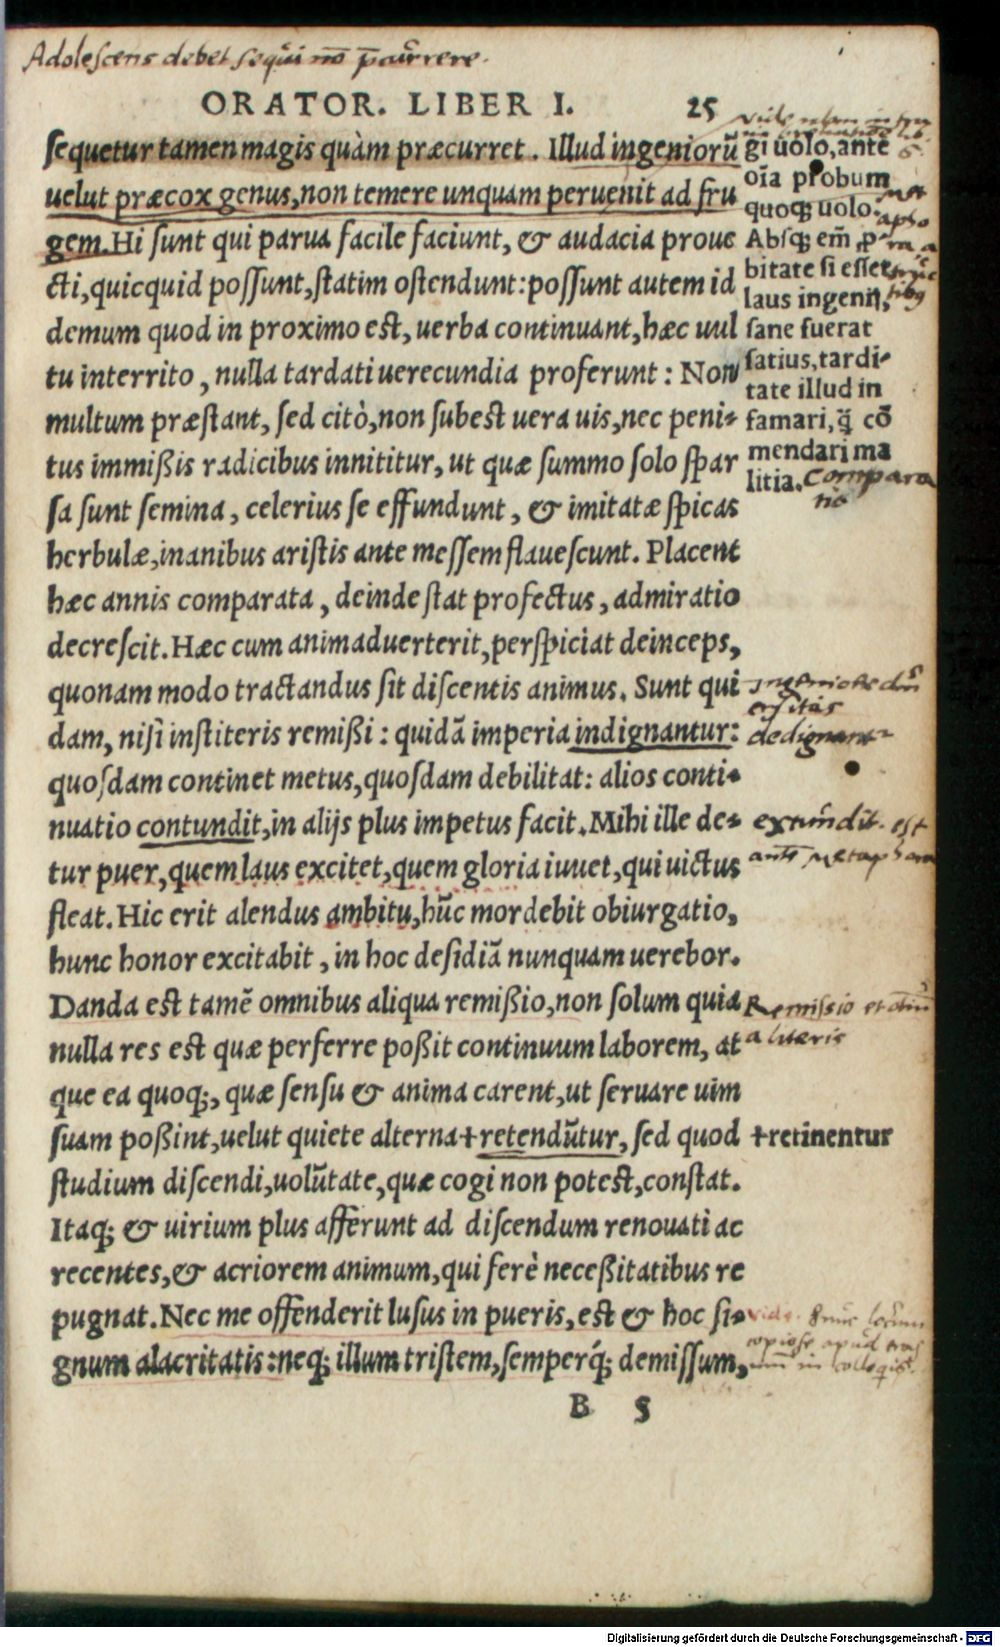 Adolescens debet sequi nō p̄currere.
ORATOR. LIBER I. 25
sequetur tamen magis quàm præcurret. Illud ingeniorũ
uelut præcox genus, non temere unquam peruenit ad fru
gem. Hi sunt qui parua facile faciunt, & audacia proue
cti, quicquid possunt, statim ostendunt: possunt autem id
demum quod in proximo est, uerba continuant, hæc uul
tu interrito, nulla tardati uerecundia proferunt: Non
multum præstant, sed citò, non subest uera uis, nec peni-
tus immißis radicibus innititur, ut quæ summo solo spar
sa sunt semina, celerius se effundunt, & imitatæ spicas
herbulæ, inanibus aristis ante messem flauescunt. Placent
hæc annis comparata, deinde stat profectus, admiratio
decrescit. Hæc cum animaduerterit, perspiciat deinceps,
quonam modo tractandus sit discentis animus. Sunt qui
dam, nisi institeris remißi: quidã imperia indignantur:
quosdam continet metus, quosdam debilitat: alios conti-
nuatio contundit, in alijs plus impetus facit. Mihi ille de-
tur puer, quem laus excitet, quem gloria iuuet, qui uictus
fleat. Hic erit alendus ambitu, hũc mordebit obiurgatio,
hunc honor excitabit, in hoc desidiã nunquam uerebor.
Danda est tamẽ omnibus aliqua remißio, non solum quia
nulla res est quæ perferre poßit continuum laborem, at
que ea quoq;, quæ sensu & anima carent, ut seruare uim
suam poßint, uelut quiete alterna + retendũtur, sed quod
studium discendi, uolũtate, quæ cogi non potest, constat.
Itaq; & uirium plus afferunt ad discendum renouati ac
recentes, & acriorem animum, qui ferè neceßitatibus re
pugnat. Nec me offenderit lusus in pueris, est & hoc si-
gnum alacritatis: neq; illum tristem, semperq́; demissum,
B 5
gi uolo, ante
oĩa probum
quoq; uolo.
Absq; em̃ ꝓ
bitate si esset
laus ingenij,
sane fuerat
satius, tardi-
tate illud in
famari, q̃ cõ
mendari ma
litia.
Compara
tio
dedignant
Remissio et
a literis
+ retinentur
Digitalisierung gefördert durch die Deutsche Forschungsgemeinschaft - DFG